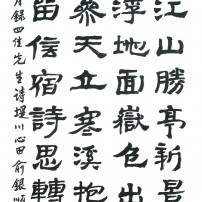 江山勝亭新
浮地面嶽色出
參天立寒溪抱
留信宿詩思轉
月錄四佳先生詩堤川心田俞銀順